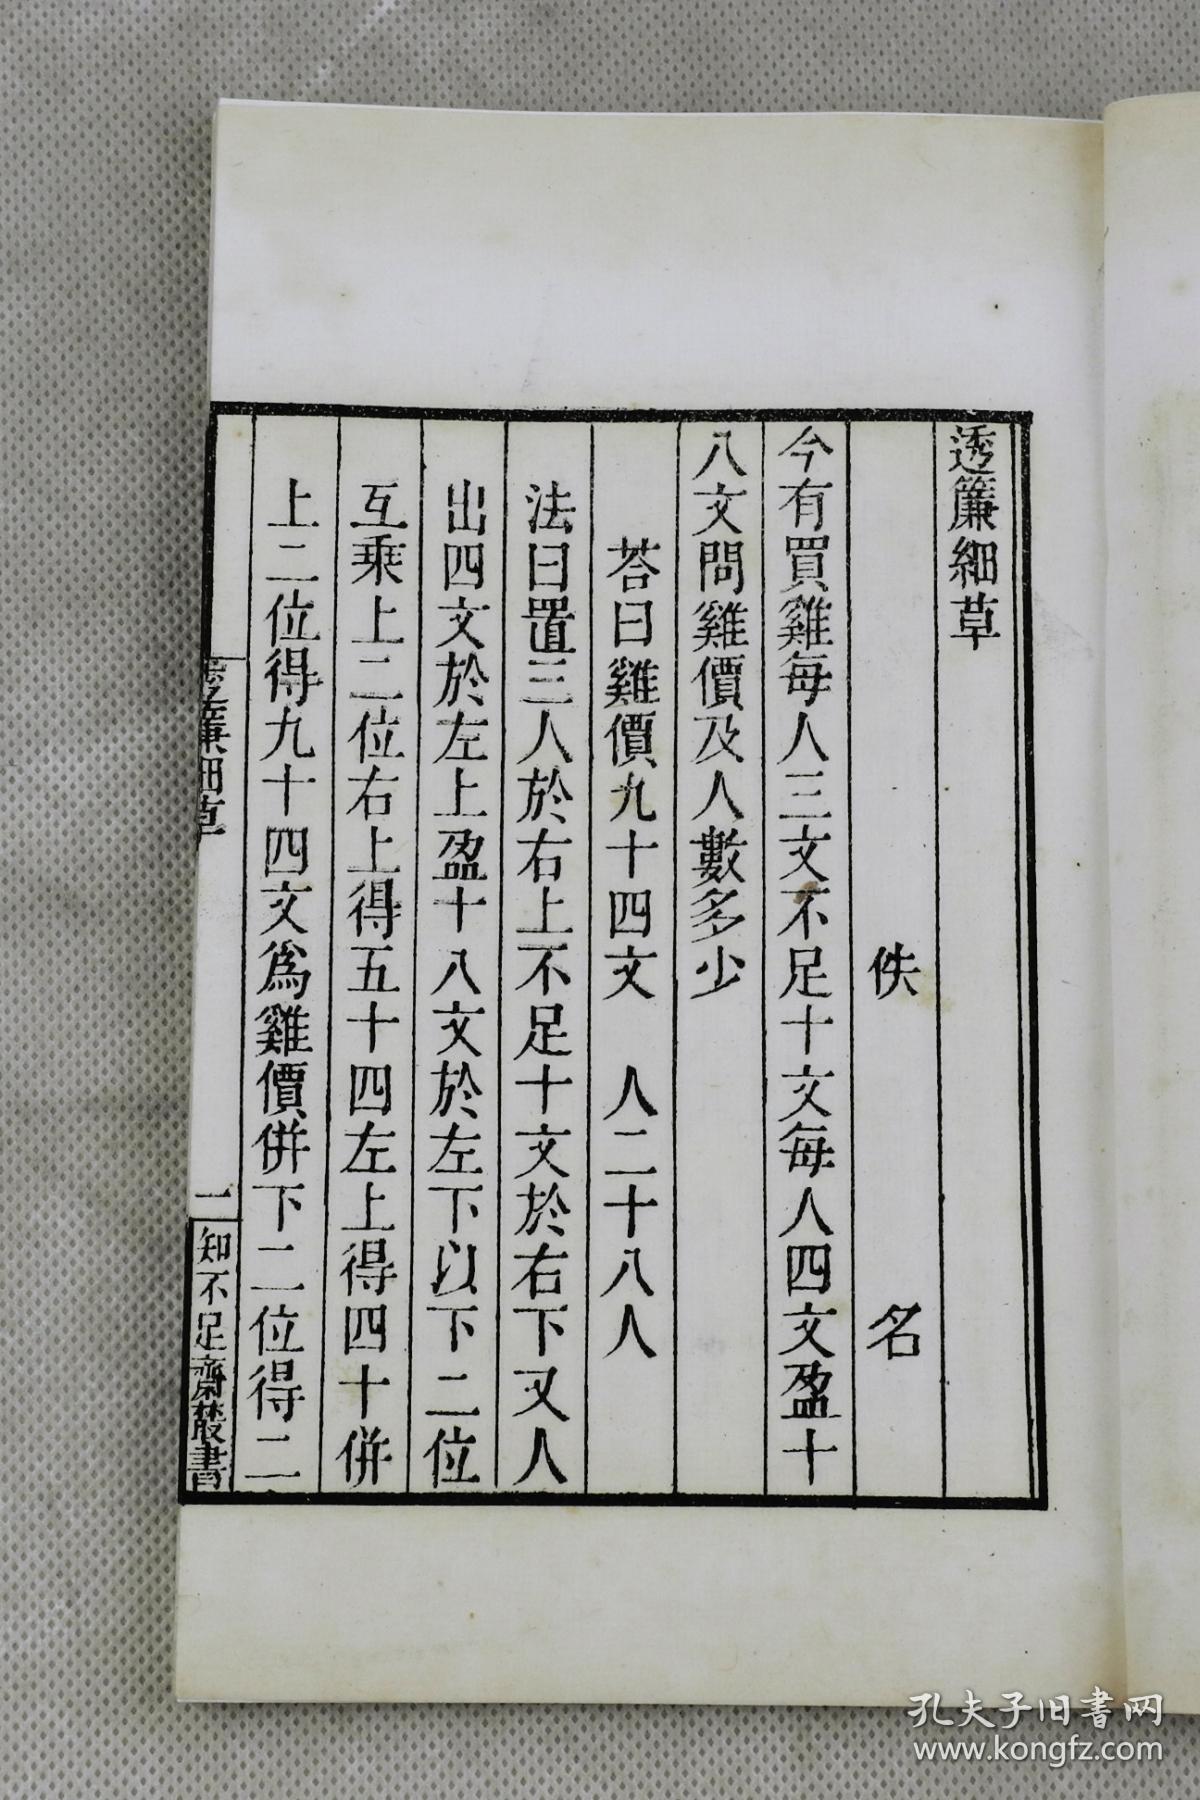 透簾細草
佚名
今有買雞每人三文不足十文每人四文盈十
八文問雞價及人數多少
荅曰雞價九十四文　人二十八人
法曰置三人於右上不足十文於右下又人
出四文於左上盈十八文於左下以下二位
互乘上二位右上得五十四左上得四十併
上二位得九十四文爲雞價併下二位得二
透簾細草
一
知不足齋叢書
孔夫子旧书网
www.kongfz.com